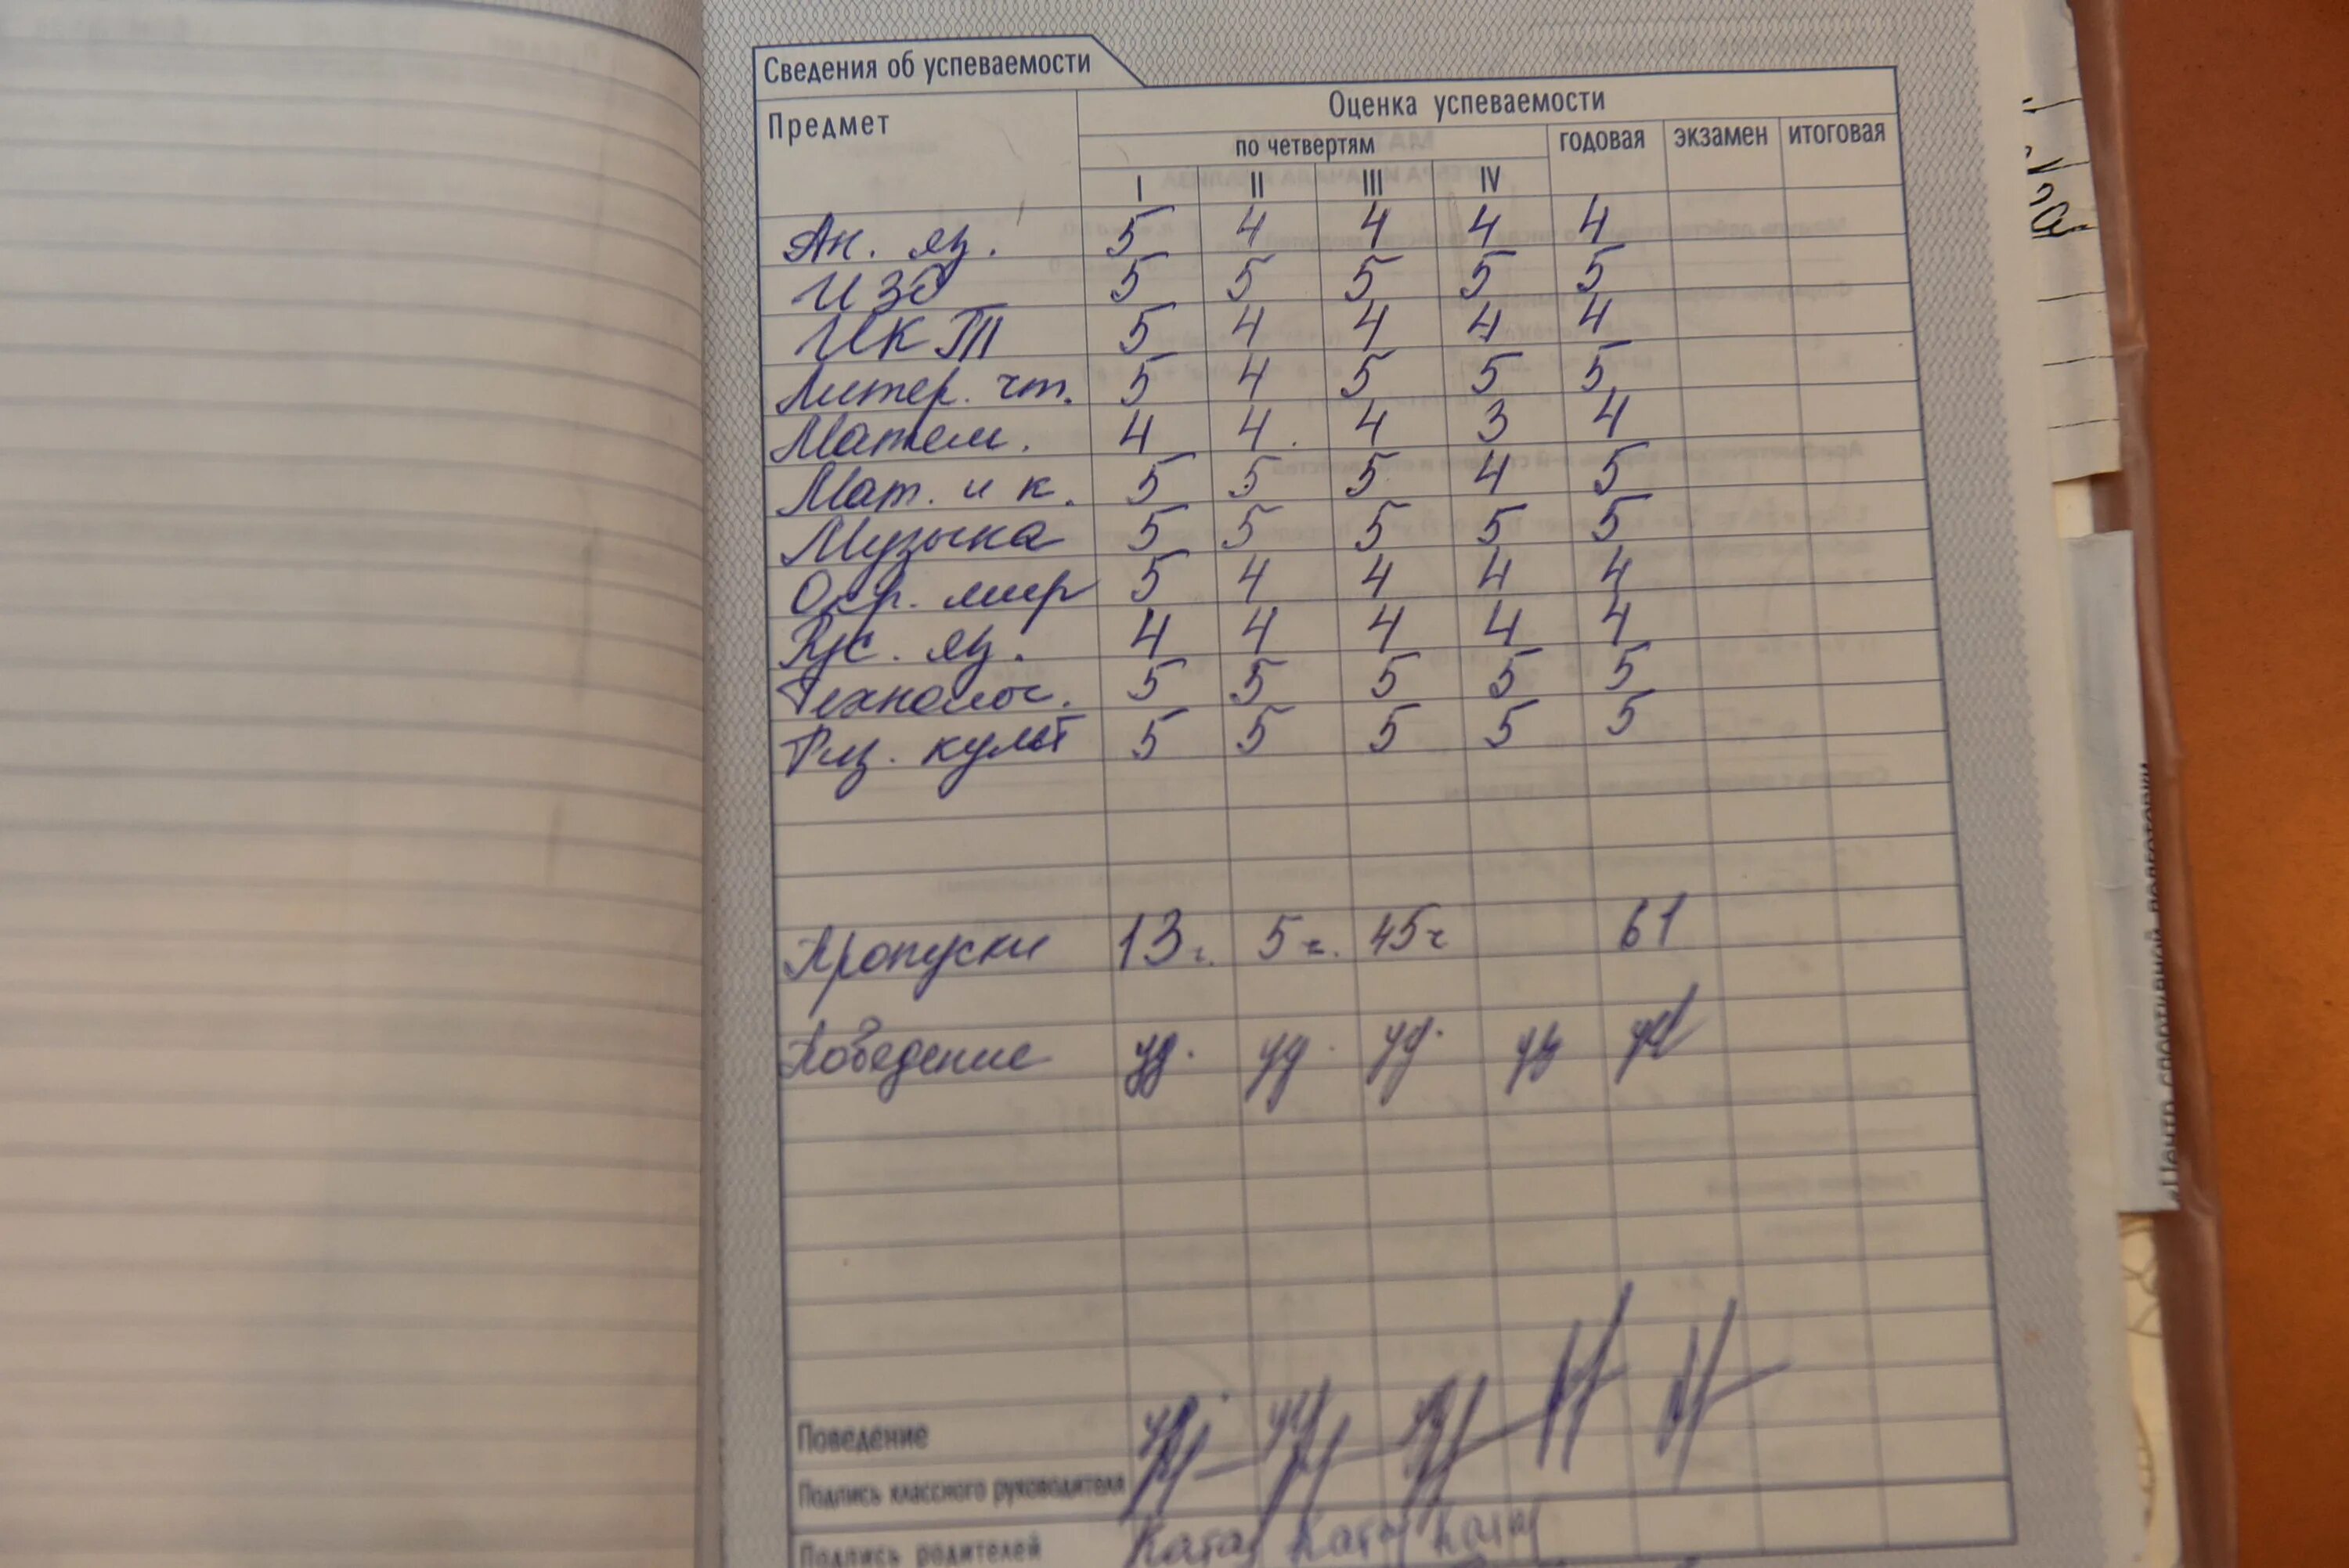 Сведения об успеваемости
Предмет Оценка успеваемости
по четвертям годовая экзамен итоговая
I II III IV
Ан. яз. 5 4 4 4 4
ИЗО 5 5 5 5 5
ИКТ 5 4 4 4 4
Литер. чт. 5 4 5 5 5
Матем. 4 4 4 3 4
Мат. и к. 5 5 5 4 5
Музыка 5 5 5 5 5
Окр. мир 5 4 4 4 4
Рус. яз. 4 4 4 4 4
Технолог. 5 5 5 5 5
Физ. культ 5 5 5 5 5
Пропуски 13 ч. 5 ч. 45 ч 61
Поведение уд. уд. уд. уд уд
Поведение уд. уд уд
Подпись классного руководителя
Подпись родителей
Центр спортивной подготовки